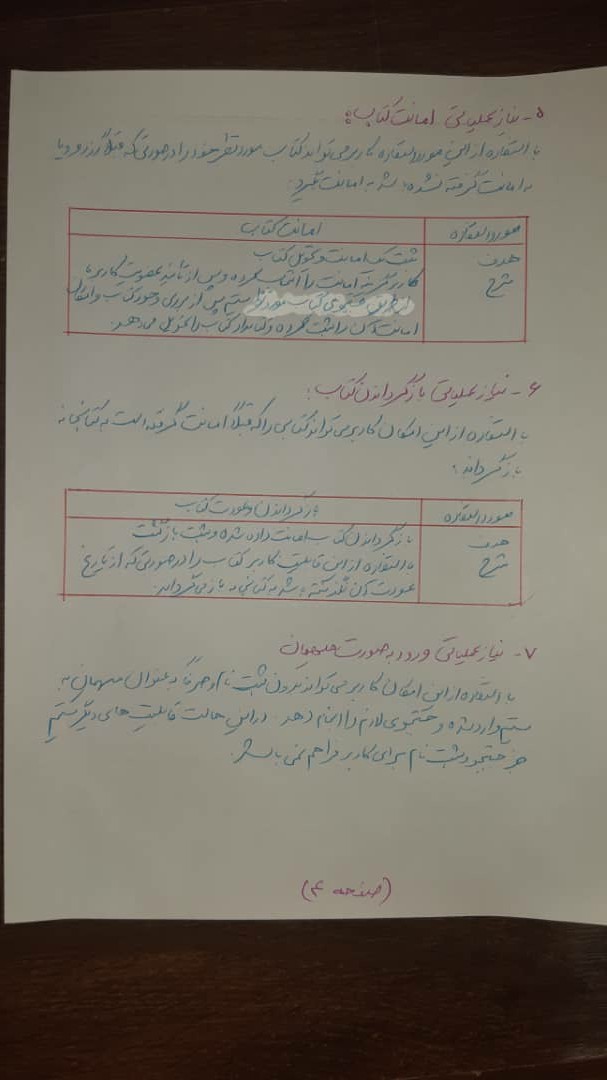 ۵- نیاز عملیاتی امانت کتاب:
با استفاده از این مورد استفاده کاربر می تواند کتاب مورد نظر خود را در صورتی که قبلاً رزرو و یا
به امانت گرفته نشده باشد به امانت بگیرد.
مورد استفاده امانت کتاب
هدف ثبت یک امانت و تحویل کتاب
شرح کاربر گزینه امانت را انتخاب کرده و پس از تأیید عضویت کاربر با
جستجوی کتاب مورد نظر سیستم پس از بررسی وجود کتاب و امکان
امانت آن را ثبت کرده و کتابدار کتاب را تحویل می دهد.
۶- نیاز عملیاتی بازگرداندن کتاب:
با استفاده از این امکان کاربر می تواند کتابی را که قبلاً امانت گرفته است به کتابخانه
بازگرداند.
مورد استفاده بازگرداندن و عودت کتاب
هدف بازگرداندن کتاب امانت داده شده و ثبت بازگشت
شرح با استفاده از این قابلیت کاربر کتاب را در صورتی که از تاریخ
عودت آن نگذشته باشد به کتابخانه باز می گرداند.
۷- نیاز عملیاتی ورود به صورت میهمان
با استفاده از این امکان کاربر می تواند بدون ثبت نام و صرفاً به عنوان میهمان به
سیستم وارد شده و جستجوی لازم را انجام دهد. در این حالت قابلیت های دیگر سیستم
جز جستجو و ثبت نام برای کاربر فراهم نمی باشد.
(صفحه ۴)